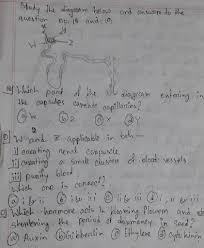 Study the diagram below and answer to the
question no. 18 and 19
W
18 Which part of the diagram entering in
the capsules capillaries?
a W b Z c X d Y
2
W and Z applicable in
i) creating renal corpuscle
ii) creating a small cluster of blood vessels
iii) purify blood
Which one is correct?
a i & ii b i & iii c ii & iii d i, ii & iii
Which hormone acts in blooming flowers and
shortening the period of dormancy in seed?
a Auxin b Gibberellin c Ethylene d Cytokinin